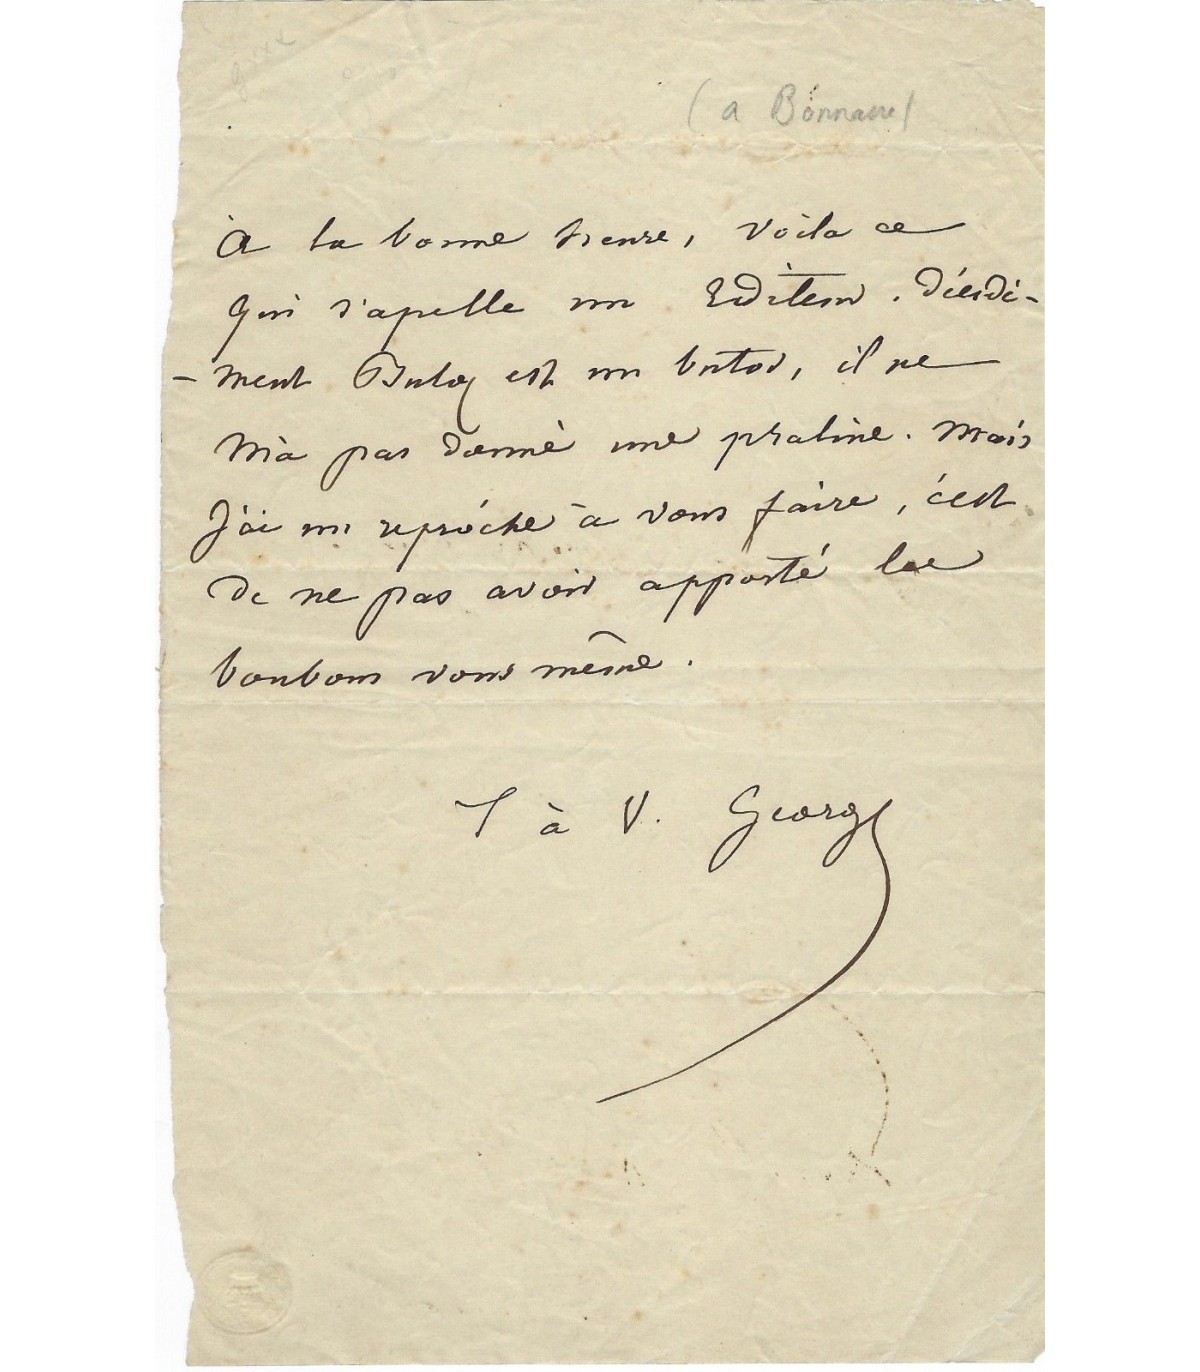 (a Bonnaire)
À la bonne heure, voila ce
qui s'apelle un Editeur. décidé-
-ment Buloz est un butor, il ne
m'a pas donné une praline. Mais
j'ai un reproche à vous faire, c'est
de ne pas avoir apporté les
bonbons vous même.
T à V. George